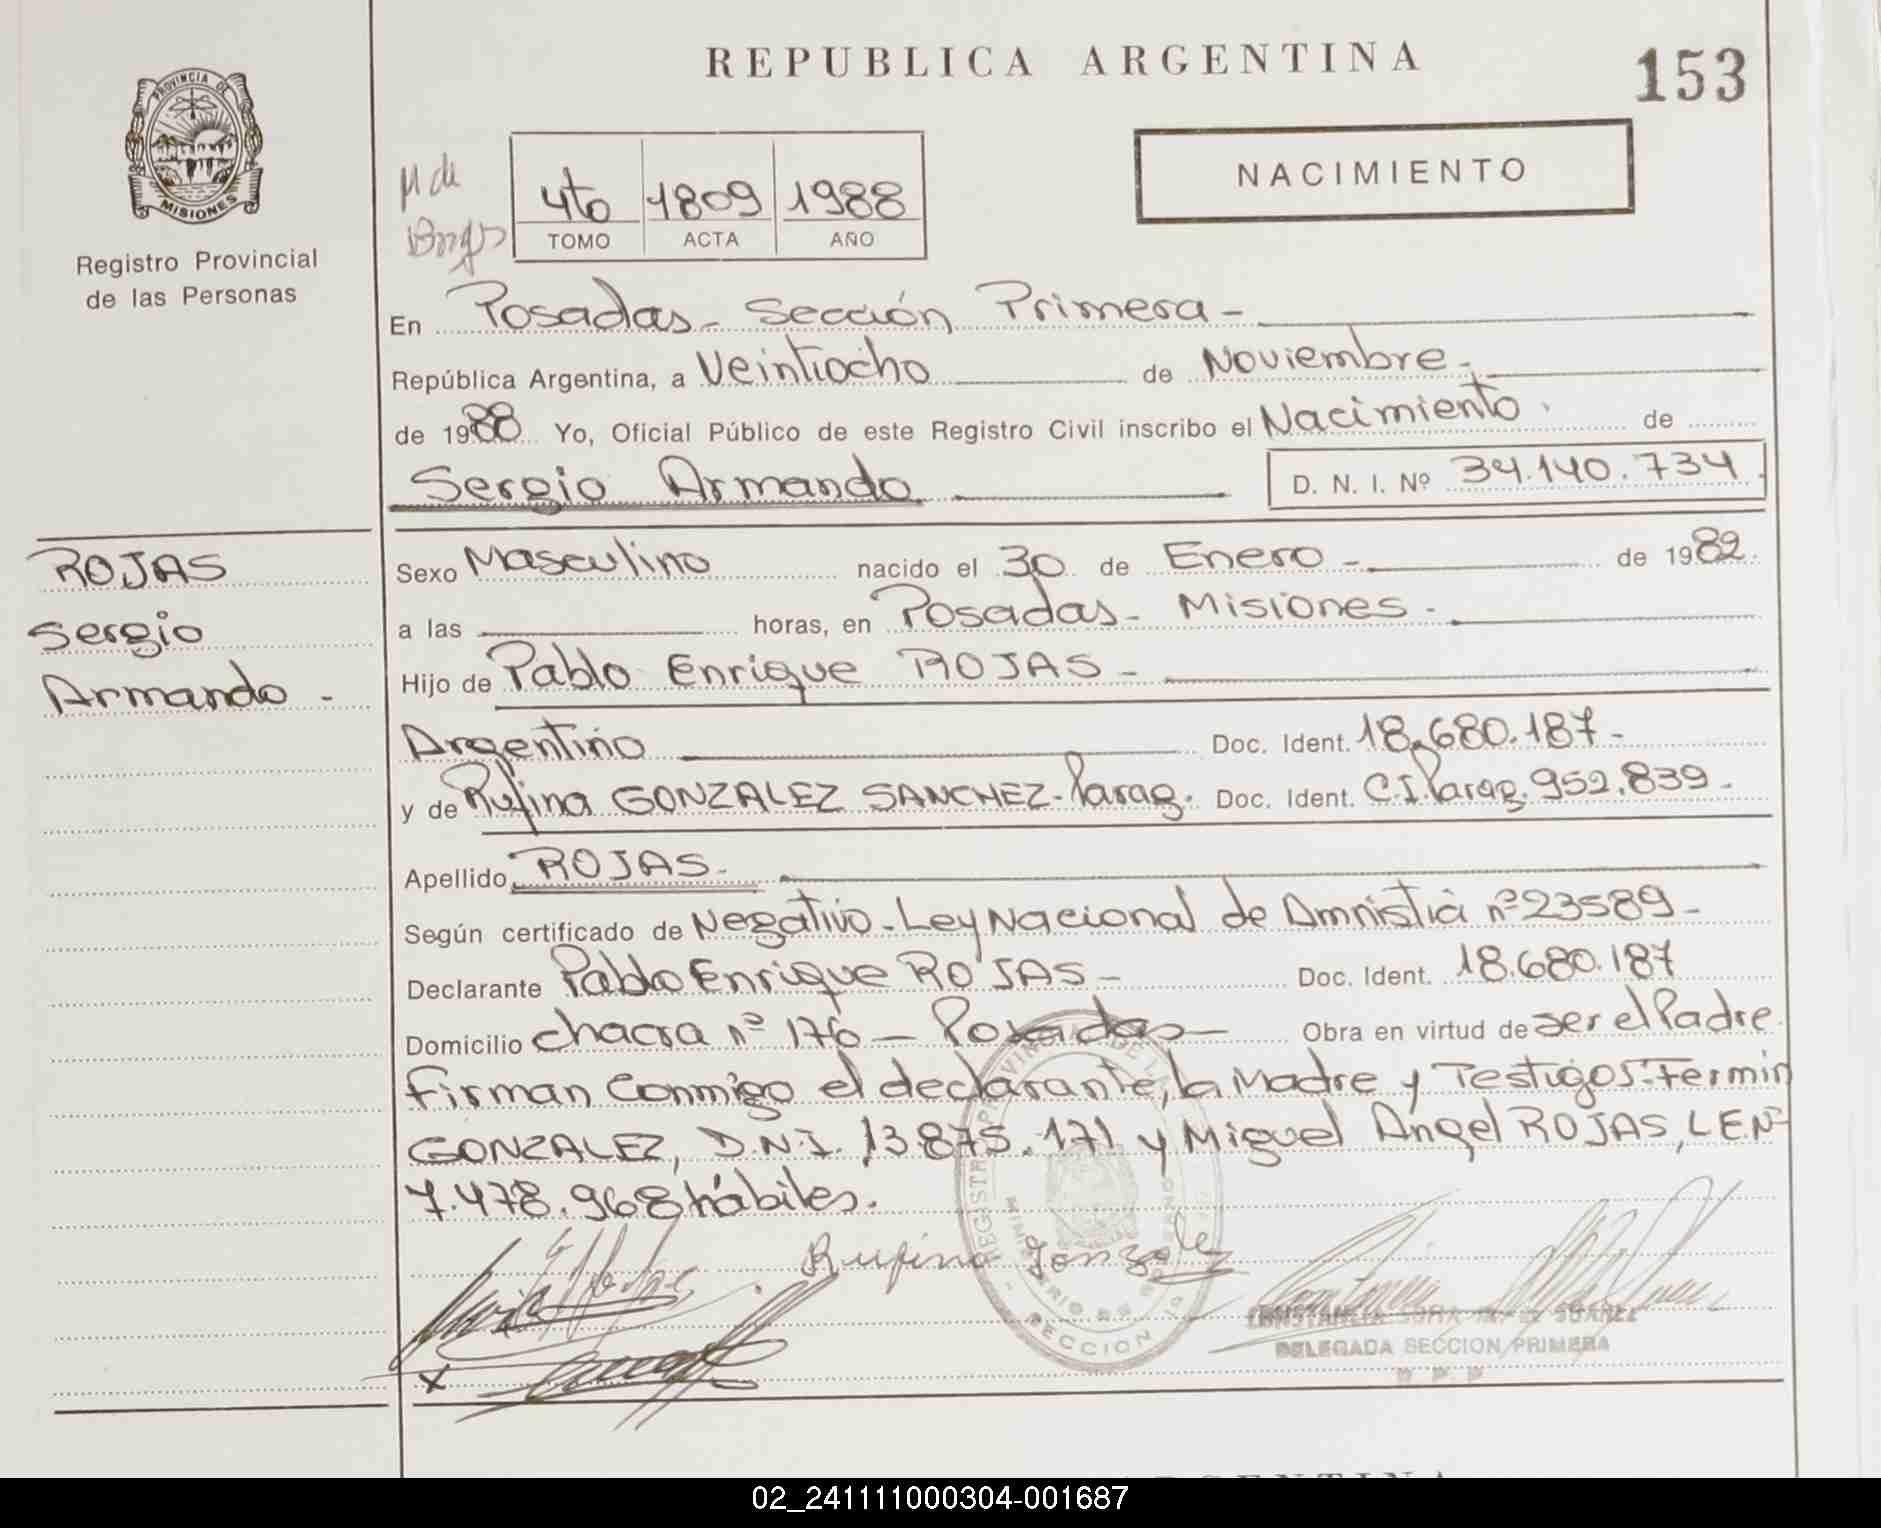 REPUBLICA ARGENTINA
153
PROVINCIA DE
MISIONES
Registro Provincial
de las Personas
NACIMIENTO
M de
4to 1809 1988
TOMO ACTA AÑO
En Posadas - Sección Primera -
República Argentina, a Veintiocho de Noviembre -
de 1988 Yo, Oficial Público de este Registro Civil inscribo el Nacimiento. de
Sergio Armando D. N. I. Nº 34.140.734
ROJAS
Sergio
Armando -
Sexo Masculino nacido el 30 de Enero - de 1982.
a las horas, en Posadas - Misiones -
Hijo de Pablo Enrique ROJAS -
Argentino Doc. Ident. 18.680.187 -
y de Rufina GONZALEZ SANCHEZ - Parag. Doc. Ident. C.I. Parag. 952.839 -
Apellido ROJAS -
Según certificado de Negativo - Ley Nacional de Amnistia nº 23589 -
Declarante Pablo Enrique ROJAS - Doc. Ident. 18.680.187
Domicilio chacra nº 176 - Posadas - Obra en virtud de ser el Padre
Firman conmigo el declarante, la Madre y Testigos: Fermin
GONZALEZ, D.N.I. 13.875.171 y Miguel Angel ROJAS, L.E.Nº
7.478.968 hábiles.
Rufina Gonzalez
SECCION
SUAREZ
DELEGADA SECCION PRIMERA
ARGENTINA
02_241111000304-001687